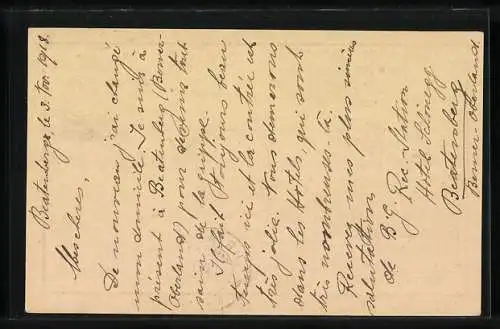 Beatenberg, le 3. Nov. 1918.
Mes chers,
De nouveau j'ai changé
mon domicile. Je suis à
présent à Beatenberg (Berner-
Oberland) pour devenir tout
sain de la grippe.
Il fait toujours beau
temps ici et la contrée est
très jolie. Nous demeurons
dans les Hotels, qui sont
très nombreuses-là.
Recevez mes plus sincères
salutations
de B. G. Rec-Station
Hotel Schönegg
Beatenberg
Berner-Oberland.